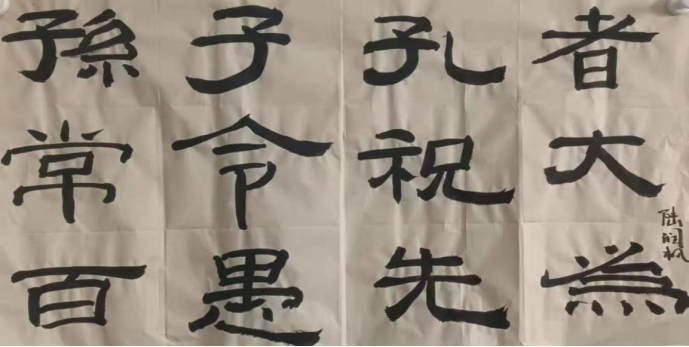 者孔子孫
大祝令常
為先愚百
陆润枫